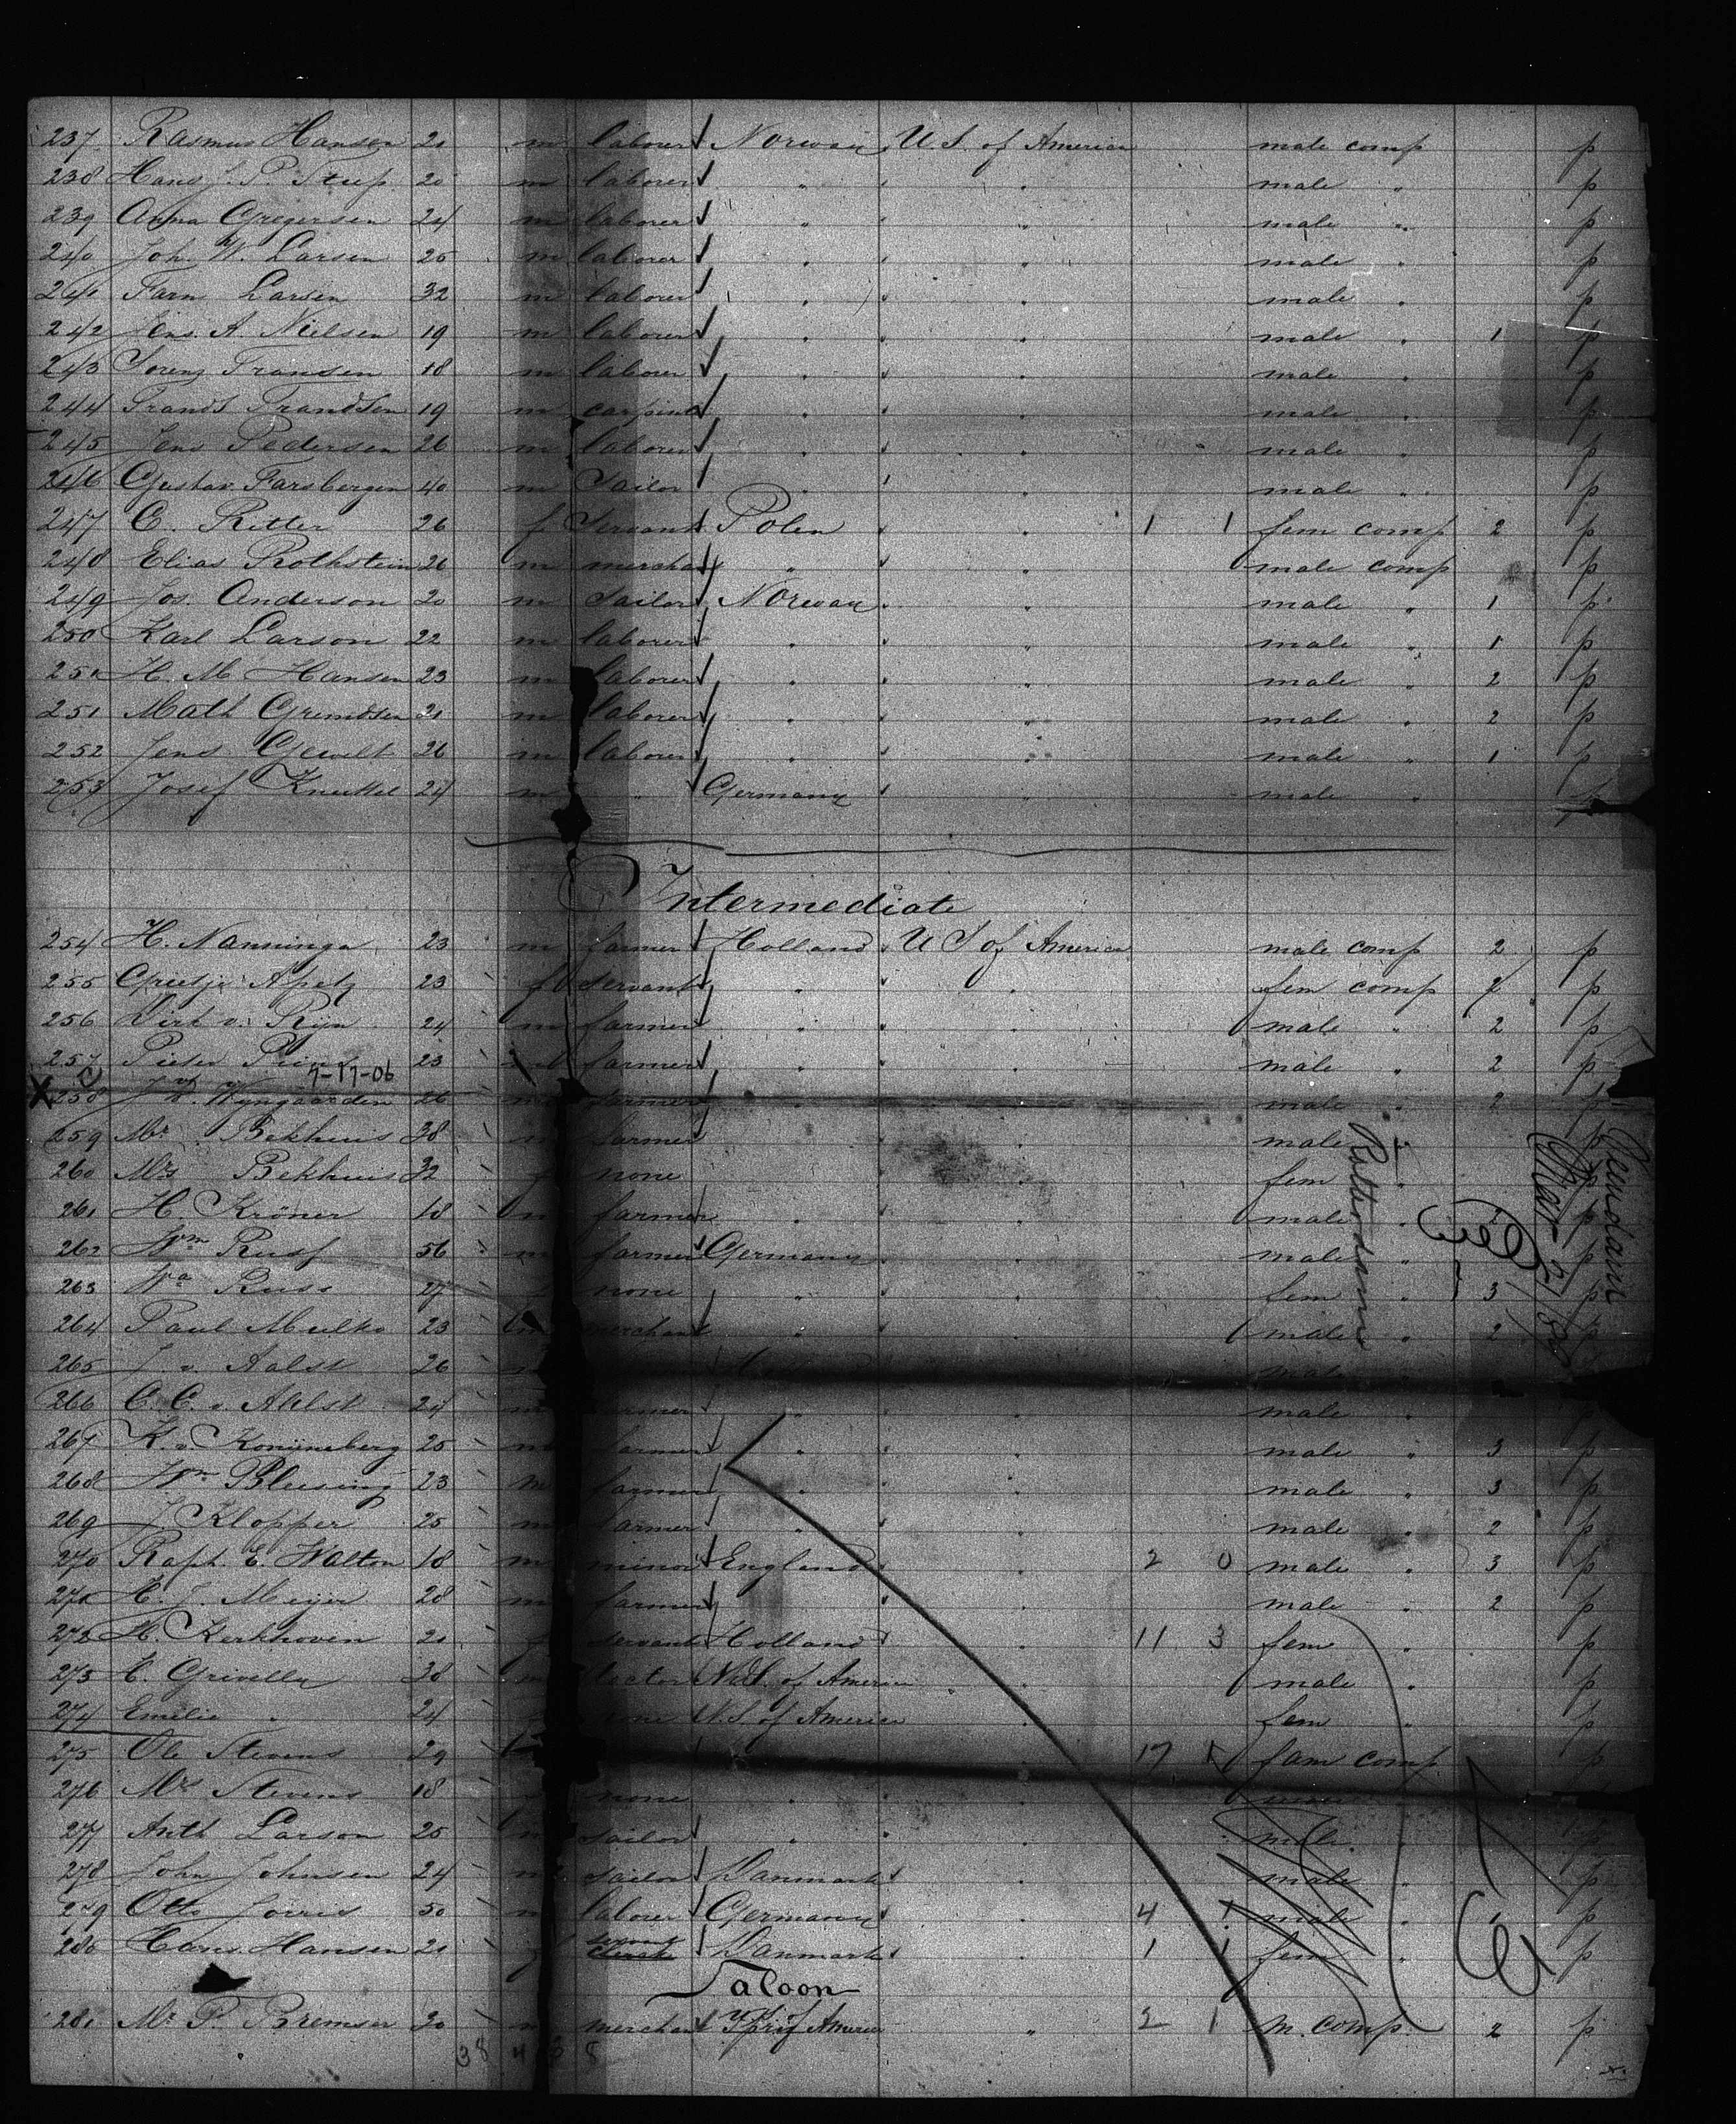 237 Rasmus Hansen 20 m laborer Norway U S. of America male comp p
238 Hans J. P. 20 m laborer " " male " p
239 Anna Gregersen 24 m laborer " " male " p
240 Joh. W. Larsen 25 m laborer " " male " p
241 Farn Larsen 32 m laborer " " male " p
242 Jens. A. Nielsen 19 m laborer " " male " 1 p
243 Sorens Fransen 18 m laborer " " male " p
244 Frands Frandsen 19 m carpint " " male " p
245 Jens Pedersen 26 m laborer " " male " p
246 Gustav Farsbergen 40 m Sailor " " male " p
247 C. Ritter 26 f Servant Polen " 1 1 fem comp 2 p
248 Elias Rothstein 26 m merchant " " male comp p
249 Jos. Anderson 20 m Sailor Norway " male " 1 p
250 Karl Larson 22 m laborer " " male " 1 p
250 H. M Hansen 23 m laborer " " male " 2 p
251 Math Gremdsen 21 m laborer " " male " 2 p
252 Jens 26 m laborer " " male " 1 p
253 Josef 24 m " Germany " male " p
Intermediate
254 H. Nanninga 23 m farmer Holland U S of America male comp 2 p
255 Greetje Apelz 23 f servant " " fem comp 2 p
256 Dirk v. Rijn 24 m farmer " " male " 2 p
257 Pieter 23 m farmer " " male " 2 p
7-17-06
X 258 J. v. Wyngaarden 26 m farmer " " male " 2 p
259 Mr. Bekhuis 38 m farmer " " male " p
260 Mrs Bekhuis 32 f none " " fem " p
261 H Kröner 18 m farmer " " male " p
262 Wm Russ 56 m farmer Germany " male " p
263 Wa Russ 27 none " " fem " 3 p
264 Paul Mulko 23 m merchant " " male " 2 p
265 J. v. Aalst 26 m male
266 C. C. v. Aalst 24 m farmer " " male " p
267 K. v Konijneberg 25 m farmer " " male " 3 p
268 Wm Blesing 23 m farmer " " male " 3 p
269 J. Klopper 25 m farmer " " male " 2 p
270 Raph. E. Walton 18 m minor England " 2 0 male " 3 p
271 H. J. Meijer 28 m farmer " " male " 2 p
272 H. Kerkhoven 21 f servant Holland " 11 3 fem " p
273 E. Grivella 38 m doctor N.S. of America " male " p
274 Emilie " 24 none U.S of America " fem " p
275 Ole Stevens 29 " 17 fam comp p
276 Mrs Stevens 18 none " "
277 Anth Larson 25 m sailor " " male " p
278 John Johnsen 24 m sailor Danmark " male " p
279 Otto 50 m laborer Germany " 4 1 male " p
280 Hans Hansen 21 Danmark " 1 1 fem " p
Saloon
281 Mr P. Bremser 20 m merchant America " 2 1 m. comp. 2 p
38 4 3 8
Rotterdam